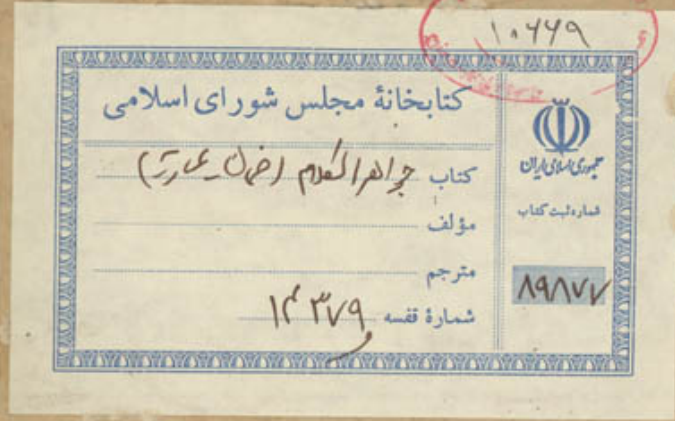 ۱۰۶۶۹
کتابخانهٔ مجلس شورای اسلامی
کتاب جواهر الکلام (ضمان ـ عاریة)
مؤلف
مترجم
شمارهٔ قفسه ۱۴۳۷۹
جمهوری اسلامی ایران
شماره ثبت کتاب
۸۹۸۷۷